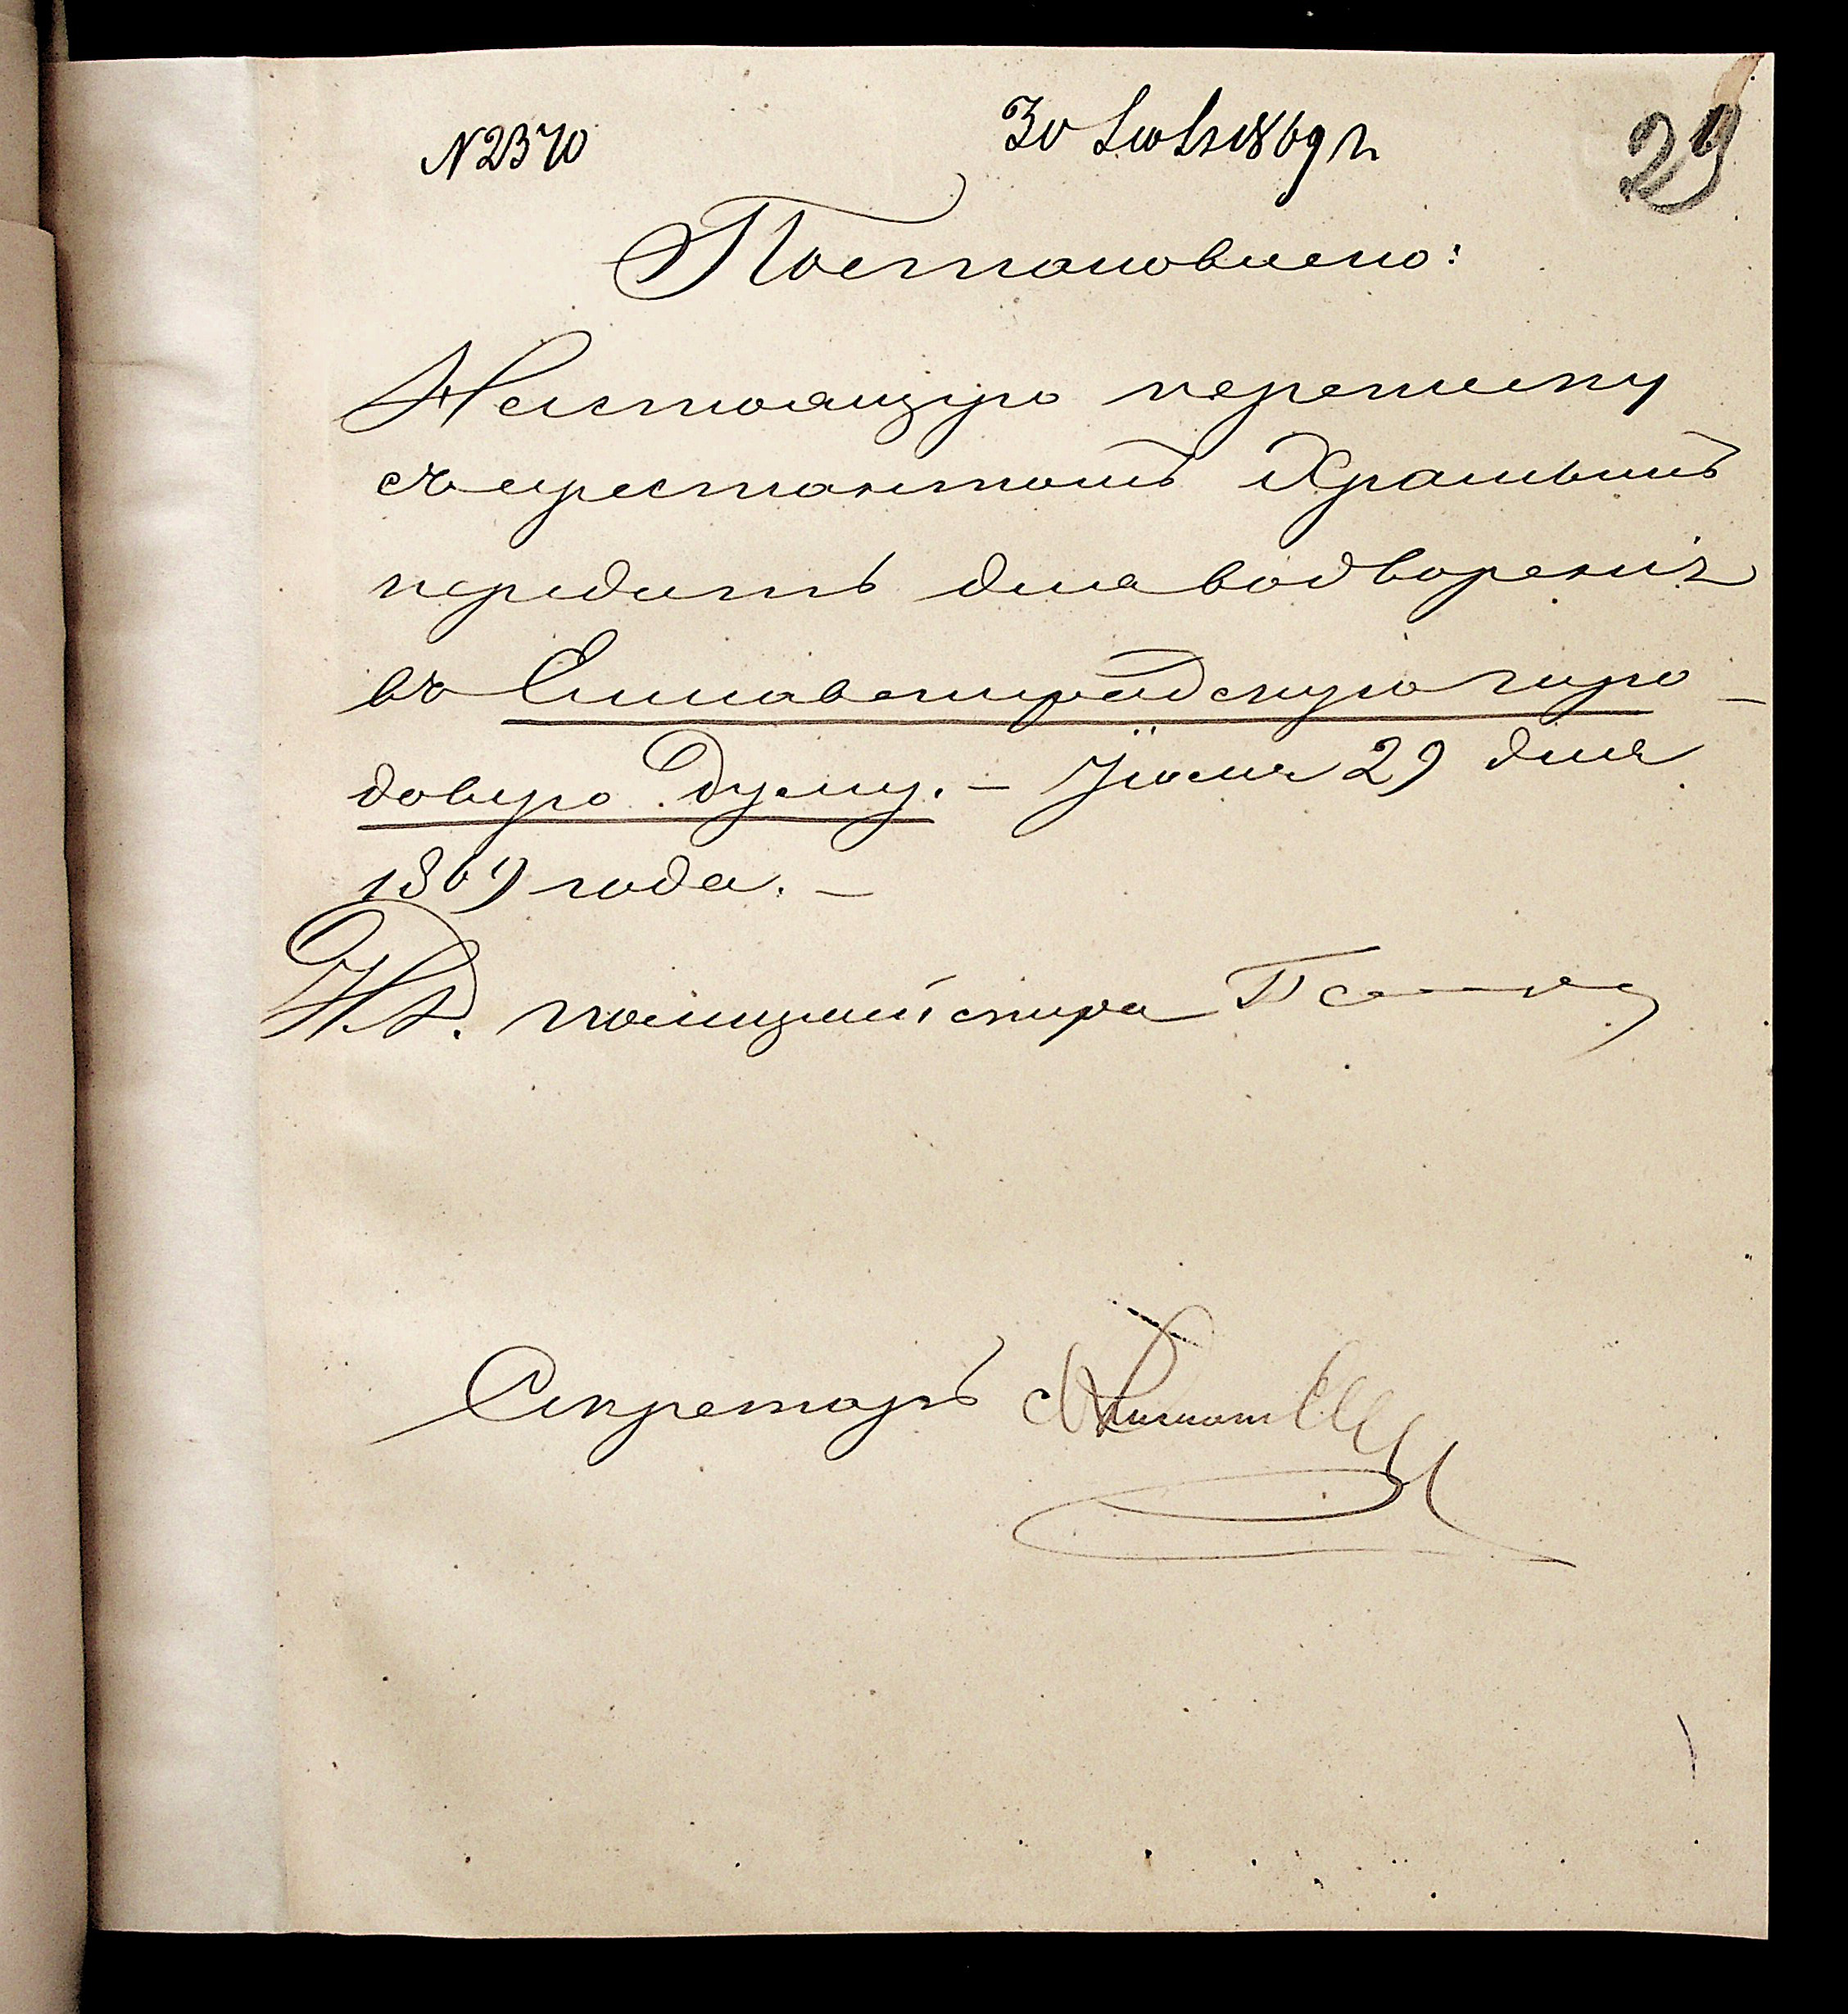 N 2370 30 Іюля 1869 г. 29
Постановлено:
Настоящую переписку
съ арестантомъ Храмымъ
передать для водворенія
въ Елисаветградскую горо-
довую Думу. – Іюля 29 дня
1869 года. –
И. д. полиціймейстера
Секретарь